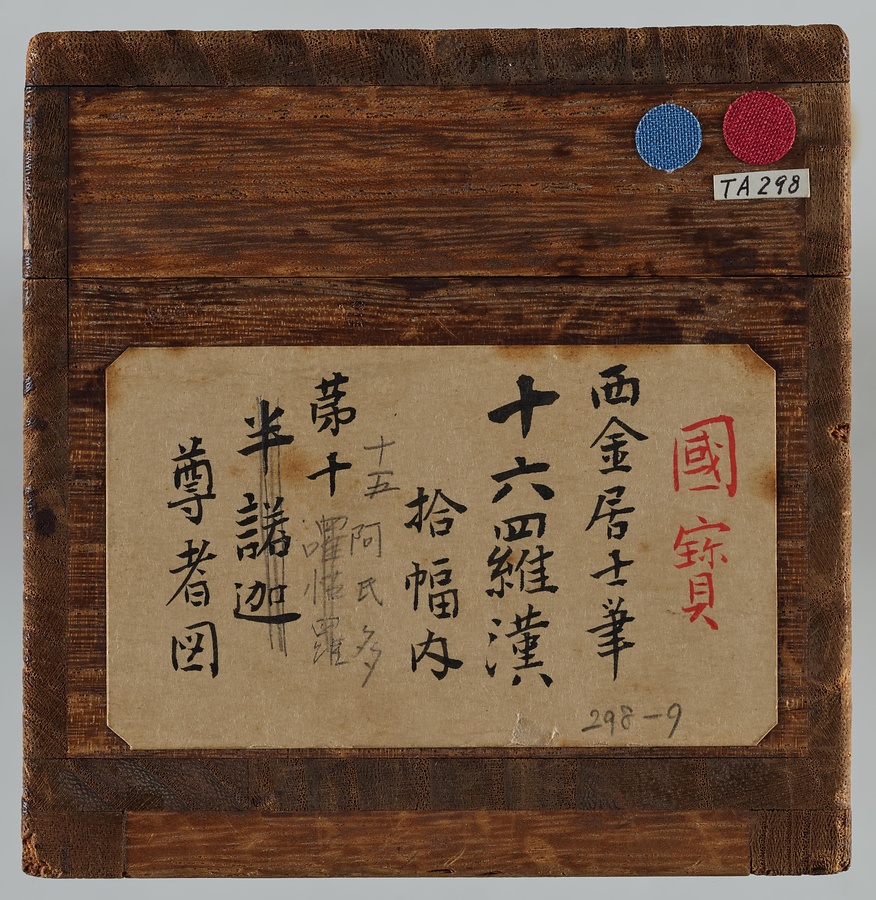 TA298
國寳
西金居士筆
十六羅漢
拾幅内
十五 阿氏多
第十
半諾迦
尊者図
298-9